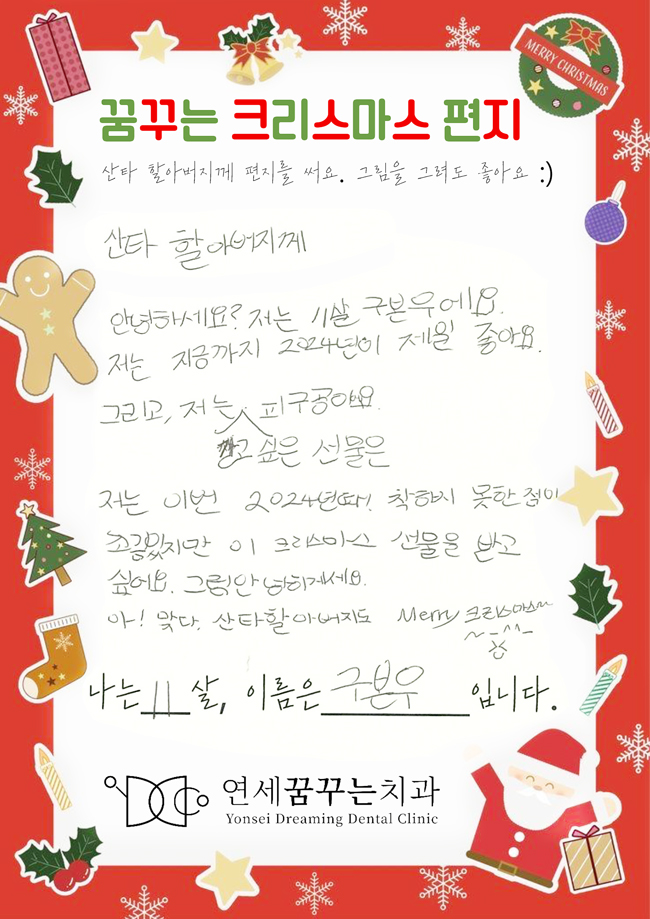 MERRY CHRISTMAS
꿈꾸는 크리스마스 편지
산타 할아버지께 편지를 써요. 그림을 그려도 좋아요 :)
산타 할아버지께
안녕하세요? 저는 11살 구본우에요.
저는 지금까지 2024년이 제일 좋아요.
그리고, 저는 피구공이예요.
받고 싶은 선물은
저는 이번 2024년때! 착하지 못한 점이
조금있지만 이 크리스마스 선물을 받고
싶어요. 그럼 안녕히계세요.
아! 맞다. 산타할아버지도 Merry 크리스마스~
나는 11 살, 이름은 구본우 입니다.
연세꿈꾸는치과
Yonsei Dreaming Dental Clinic